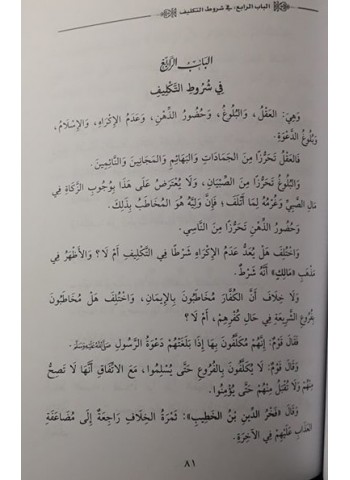 الباب الرابع: في شروط التكليف
البَابُ الرَّابِعُ
فِي شُرُوطِ التَّكْلِيفِ
وَهِيَ: العَقْلُ، وَالبُلُوغُ، وَحُضُورُ الذِّهْنِ، وَعَدَمُ الإِكْرَاهِ، وَالإِسْلَامُ،
وَبُلُوغُ الدَّعْوَةِ.
فَالعَقْلُ تَحَرُّزًا مِنَ الجَمَادَاتِ وَالبَهَائِمِ وَالمَجَانِينَ وَالنَّائِمِينَ.
وَالبُلُوغُ تَحَرُّزًا مِنَ الصِّبْيَانِ، وَلَا يُعْتَرَضُ عَلَى هَذَا بِوُجُوبِ الزَّكَاةِ فِي
مَالِ الصَّبِيِّ وَغُرْمُهُ لِمَا أَتْلَفَ؛ فَإِنَّ وَلِيَّهُ هُوَ المُخَاطَبُ بِذَلِكَ.
وَحُضُورُ الذِّهْنِ تَحَرُّزًا مِنَ النَّاسِي.
وَاخْتُلِفَ هَلْ يُعَدُّ عَدَمُ الإِكْرَاهِ شَرْطًا فِي التَّكْلِيفِ أَمْ لَا؟ وَالأَظْهَرُ فِي
مَذْهَبِ «مَالِكٍ» أَنَّهُ شَرْطٌ.
وَلَا خِلَافَ أَنَّ الكُفَّارَ مُخَاطَبُونَ بِالإِيمَانِ، وَاخْتُلِفَ هَلْ مُخَاطَبُونَ
بِفُرُوعِ الشَّرِيعَةِ فِي حَالِ كُفْرِهِمْ، أَمْ لَا؟
فَقَالَ قَوْمٌ: إِنَّهُمْ مُكَلَّفُونَ بِهَا إِذَا بَلَغَتْهُمْ دَعْوَةُ الرَّسُولِ ﷺ.
وَقَالَ قَوْمٌ: لَا يُكَلَّفُونَ بِالفُرُوعِ حَتَّى يُسْلِمُوا، مَعَ الاتِّفَاقِ أَنَّهَا لَا تَصِحُّ
مِنْهُمْ وَلَا تُقْبَلُ مِنْهُمْ حَتَّى يُؤْمِنُوا.
وَقَالَ «فَخْرُ الدِّينِ بْنُ الخَطِيبِ»: ثَمَرَةُ الخِلَافِ رَاجِعَةٌ إِلَى مُضَاعَفَةِ
العَذَابِ عَلَيْهِمْ فِي الآخِرَةِ.
٨١